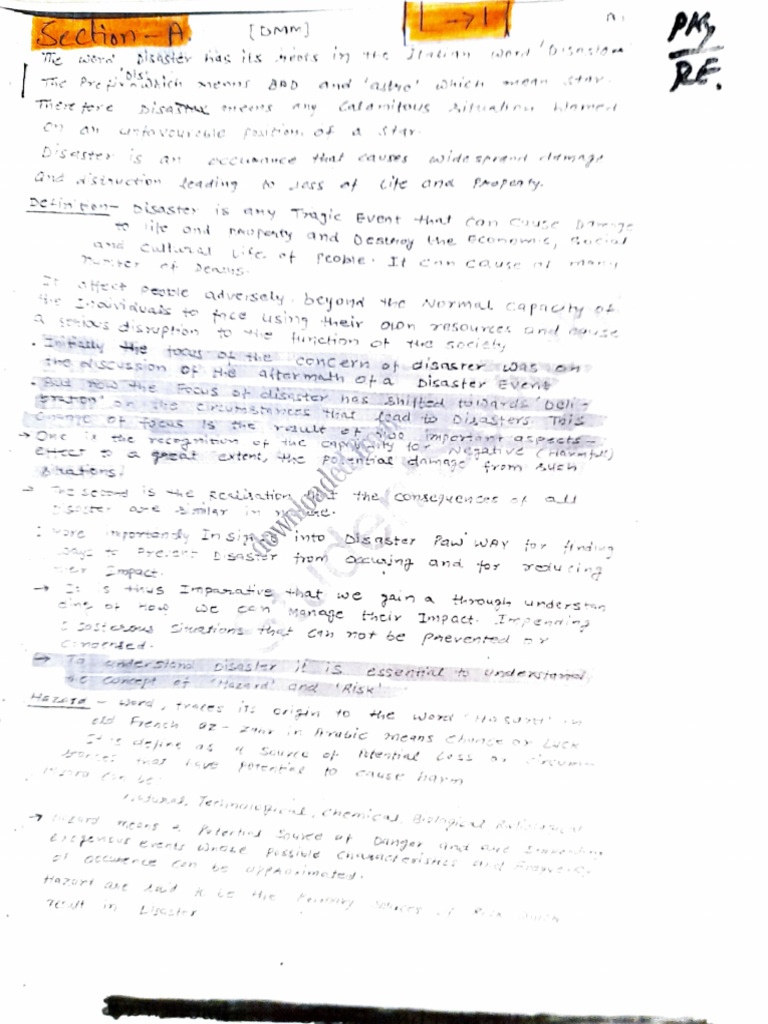 Section-A. [DMM] L→1
The word Disaster has its roots in the Italian word 'Disastro'
The Prefix 'Dis' which means BAD and 'astro' which mean star.
Therefore Disaster means any Calamitous situation blamed
on an unfavourable position of a star.
Disaster is an occurance that causes widespread damage
and distruction leading to loss of life and property.
Definition- Disaster is any Tragic Event that can cause Damage
to life and property and Destroy the Economic, Social
and Cultural Life of people. It can cause of many
number of Deaths.
It affect people adversely beyond the Normal capacity of
the Individuals to face using their own resources and cause
a serious disruption to the function of the society
• Initially the focus of the concern of disaster was on
the discussion of the aftermath of a Disaster Event
• But now the Focus of disaster has shifted towards 'Deli-
beration' on the circumstances that lead to Disasters This
change of focus is the result of two important aspects-
→ One is the recognition of the capability for Negative (Harmful)
effect to a great extent, the potential damage from such
situations.
→ The second is the Realisation that the consequences of all
Disaster are similar in nature.
: More importantly Insights into Disaster Paw WAY for finding
ways to Prevent Disaster from occuring and for reducing
their Impact.
→ It is thus Imparative that we gain a through understan
ding of how we can Manage their Impact. Impending
Disasterous situations that can not be prevented or
→ To understand Disaster it is essential to understand
the concept of 'Hazard' and 'Risk'
Hazard - word, traces its origin to the word 'Hasard' in
old French az-zhar in Arabic means Chance or Luck
It is define as a source of Potential Loss or circum-
stances that have potential to cause harm
Hazard can be
Natural, Technological, Chemical, Biological
→ Hazard means a Potential Source of Danger and are
Exogenous events whose possible characteristics and Frequency
of occurence can be approximated.
Hazart are said to be the Primary Sources of Risk which
result in Disaster
PKG
RE.
downloaded from
Studen